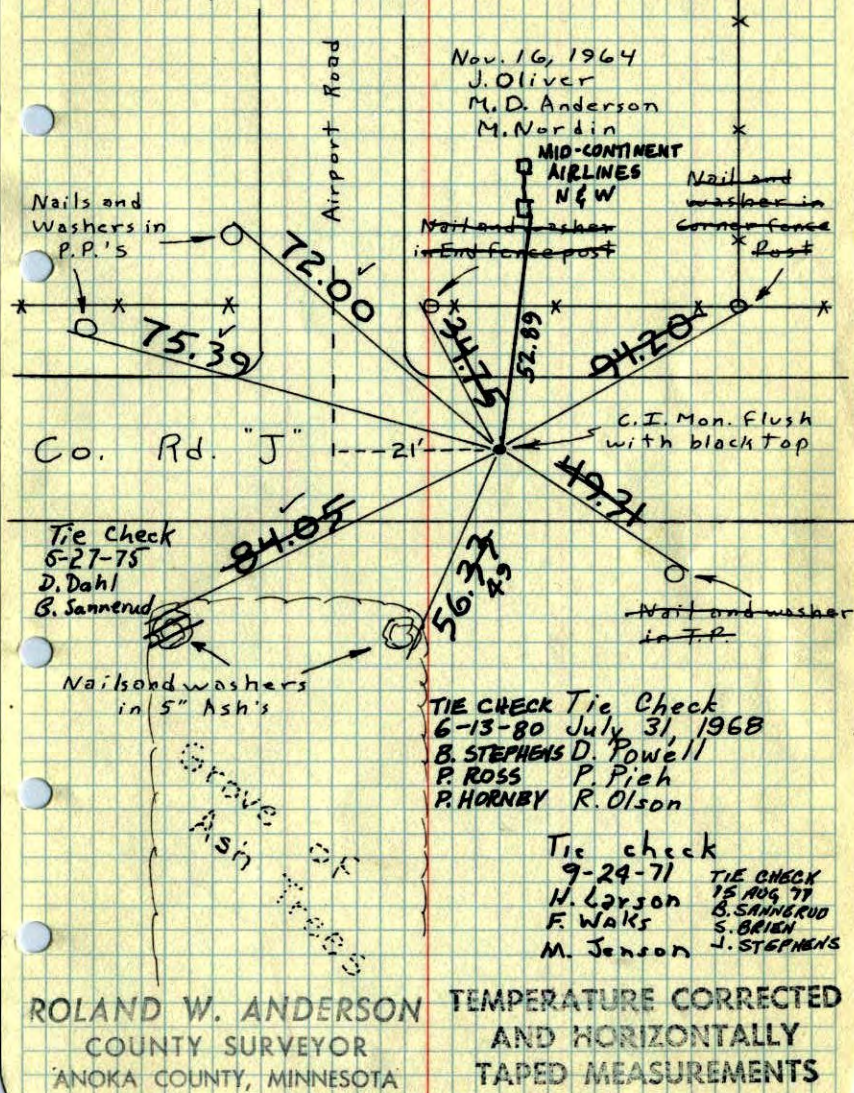 Nov. 16, 1964
J. Oliver
M. D. Anderson
M. Nordin
Airport Road
MID-CONTINENT
AIRLINES
N & W
Nails and
Washers in
P.P.'s
Nail and washer
in End fence post
Nail and
washer in
corner fence
Post
72.00
75.39
34.75
52.89
94.20
Co. Rd. "J"
21'
C.I. Mon. Flush
with blacktop
84.05
49.31
56.37
49
Tie Check
5-27-75
D. Dahl
B. Sannerud
Nail and washer
in T.P.
Nails and washers
in 5" Ash's
Grove of
Ash Trees
TIE CHECK
6-13-80
B. STEPHENS
P. ROSS
P. HORNBY
Tie Check
July 31, 1968
D. Powell
P. Pieh
R. Olson
Tie check
9-24-71
H. Larson
F. Waks
M. Jenson
TIE CHECK
15 AUG 77
B. SANNERUD
S. BRIEN
J. STEPHENS
ROLAND W. ANDERSON
COUNTY SURVEYOR
ANOKA COUNTY, MINNESOTA
TEMPERATURE CORRECTED
AND HORIZONTALLY
TAPED MEASUREMENTS